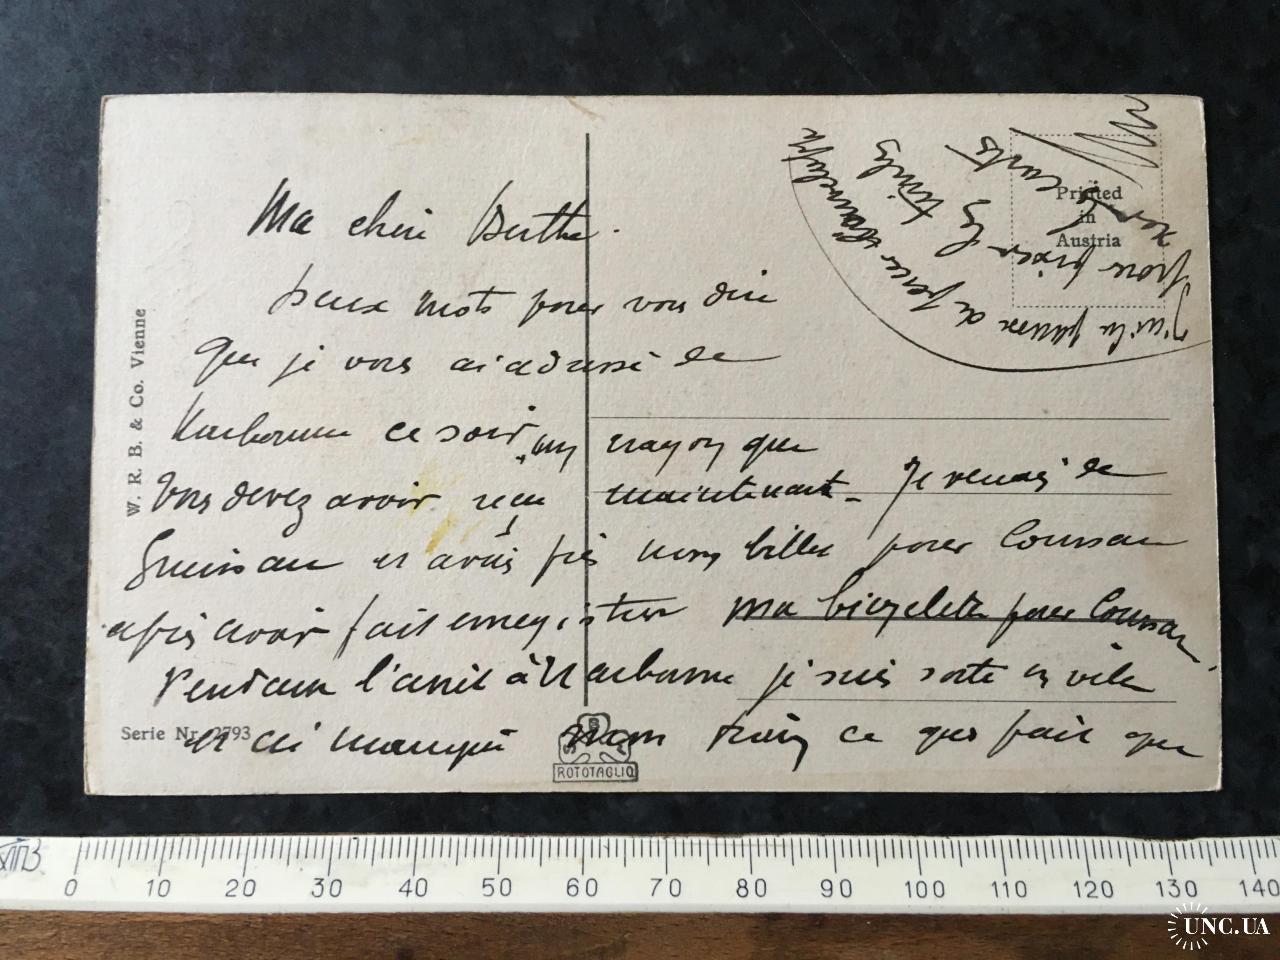 Ma cheri Berthe.
Deux mots pour vous dire
que je vous ai adressé de
Narbonne ce soir, un rayon que
vous devez avoir reçu maintenant - Je venais de
Gruissan et avais pris mon billet pour Coursan
après avoir fait enregistrer ma bicyclette pour Coursan,
Pendant l'arrêt à Narbonne je suis sorti en ville
et ai manqué mon train ce qui fait que
J'ai la de
pour
cartes
Printed
in
Austria
W. R. B. & Co. Vienne
Serie Nr. 2793
ROTOTAGLIO
0 10 20 30 40 50 60 70 80 90 100 110 120 130 140
UNC.UA